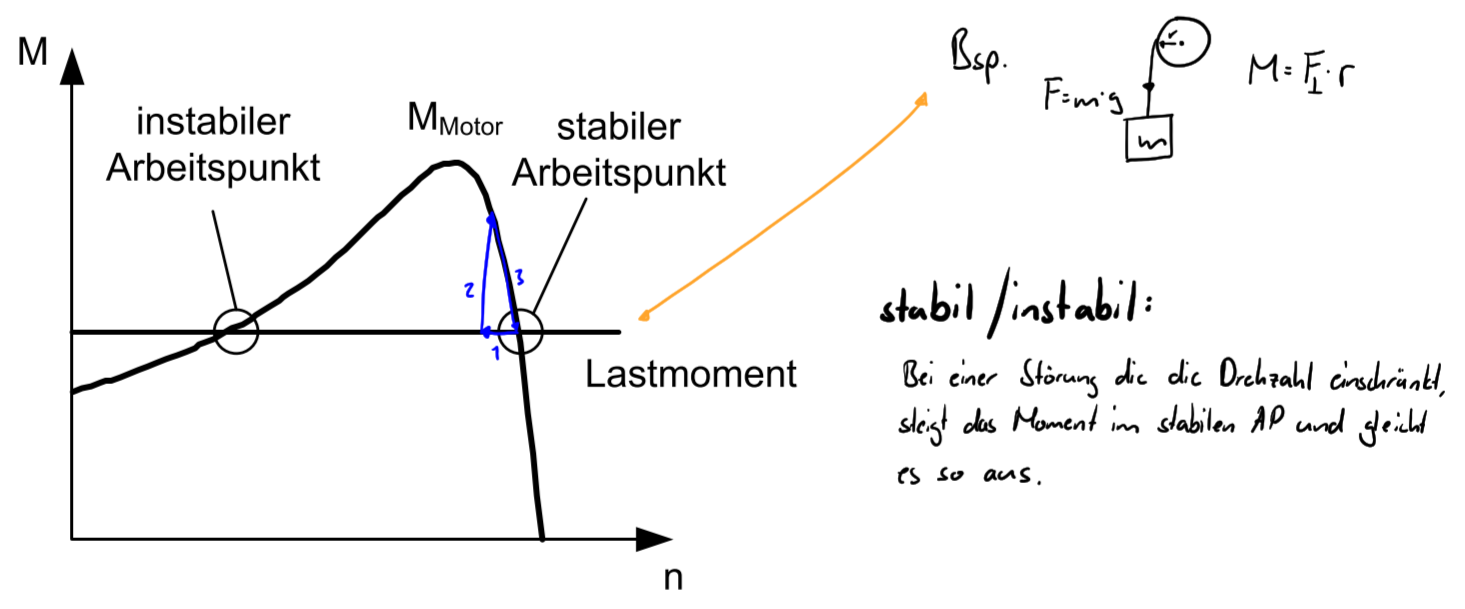 M
instabiler
Arbeitspunkt
M_Motor
stabiler
Arbeitspunkt
1
2
3
Lastmoment
n
Bsp.
r
F=m·g
m
M=F_⊥·r
stabil/instabil:
Bei einer Störung die die Drehzahl einschränkt,
steigt das Moment im stabilen AP und gleicht
es so aus.